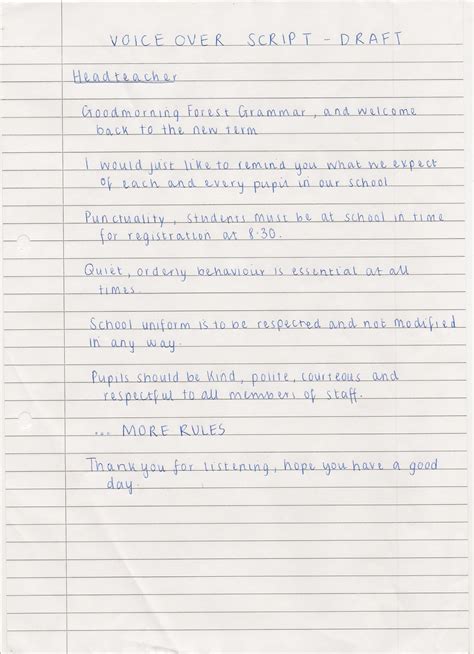 VOICE OVER SCRIPT - DRAFT
Headteacher
Goodmorning Forest Grammar, and welcome
back to the new term
I would just like to remind you what we expect
of each and every pupil in our school
Punctuality, students must be at school in time
for registration at 8.30.
Quiet, orderly behaviour is essential at all
times.
School uniform is to be respected and not modified
in any way.
Pupils should be kind, polite, courteous and
respectful to all members of staff.
... MORE RULES
Thank you for listening, hope you have a good
day.